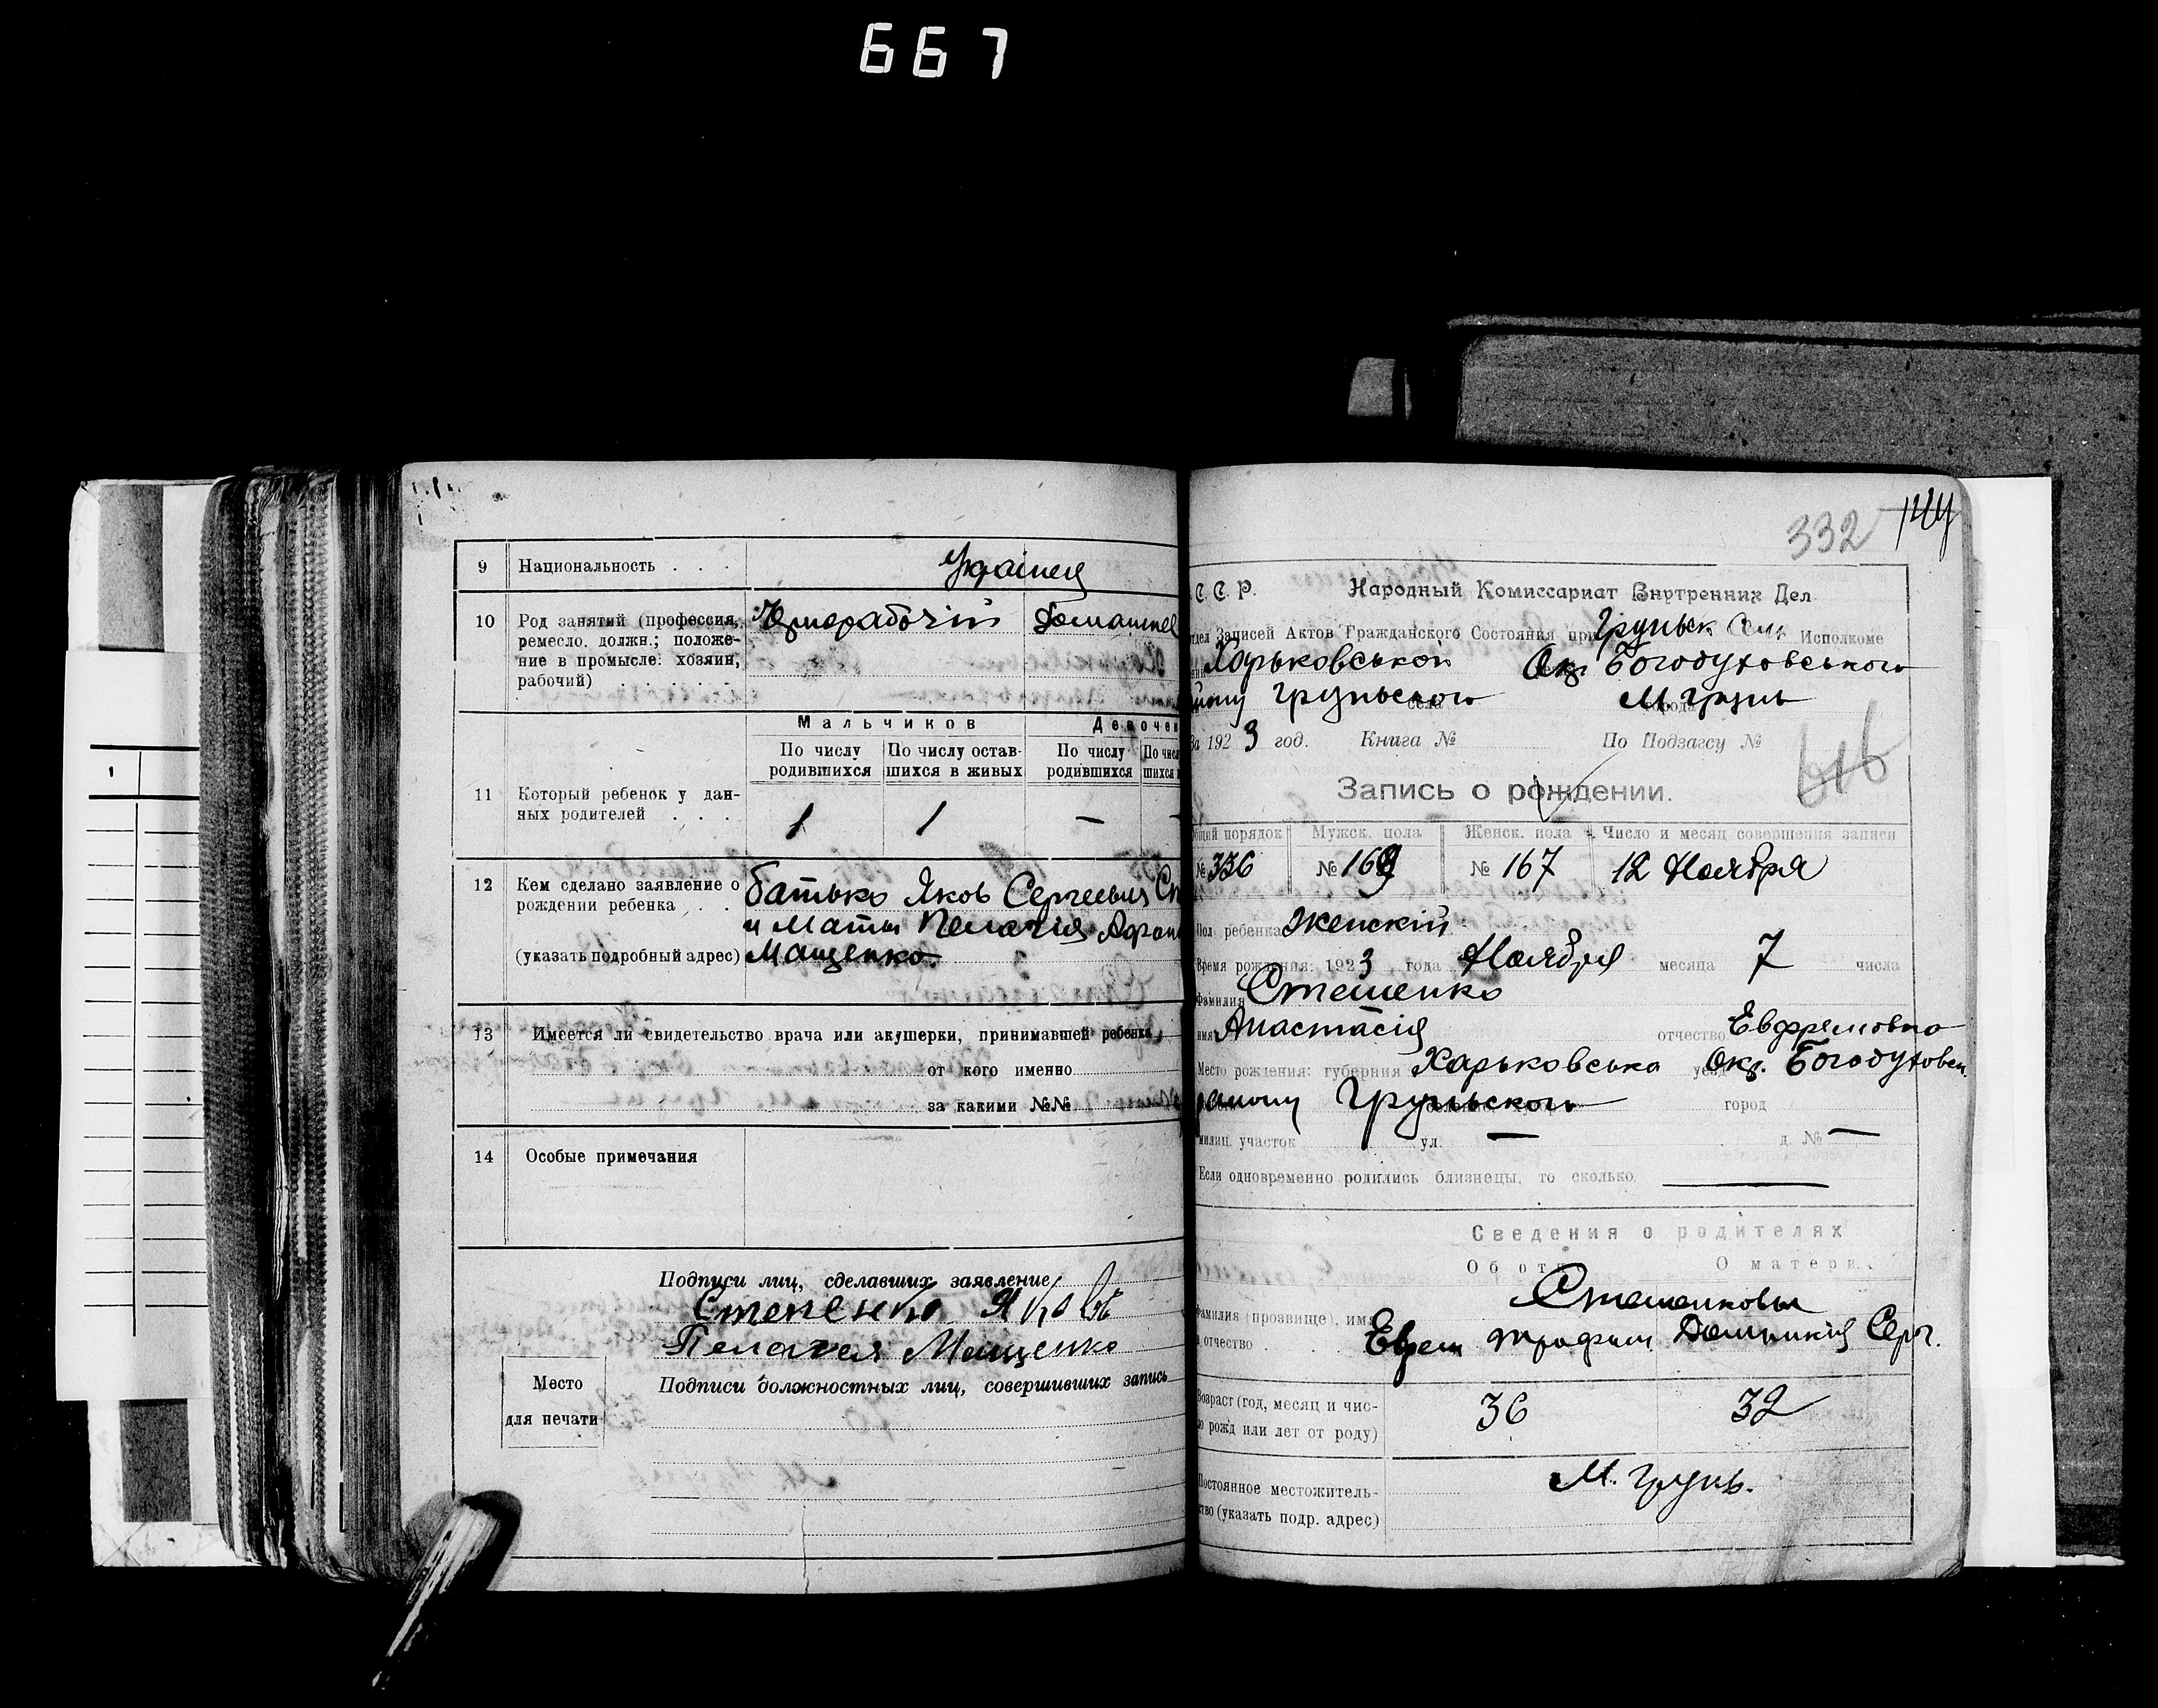 667
9 Национальность . . . Украінец
10 Род занятий (профессия, ремесло, должн.; положе-
ние в промысле: хозяин,
рабочий) . . . . . .
Чорнорабочій Домашнее
Мальчиков Девочек
По числу родившихся По числу остав-
шихся в живых По числу родившихся
11 Который ребенок у дан-
ных родителей . . . 1 1 — -
12 Кем сделано заявление о
рождении ребенка . .
(указать подробный адрес)
батько Яков Сергеевич Ст
и мати Пелагія Афан
Мащенко.
13 Имеется ли свидетельство врача или акушерки, принимавшей ребенка,
от кого именно
за какими №№
14 Особые примечания
Подписи лиц, сделавших заявление
Степенко Яковъ
Пелагея Мащенко
Место
для печати
Подписи должностных лиц, совершивших запись
332 144
С. С. Р. Народный Комиссариат Внутренних Дел
Отдел Записей Актов Гражданского Состояния при Груньск Сель Исполкоме
Харьковськой Окр. Богодуховського
йону Груньского М. Грунь
За 1923 год. Книга № По Подзагсу №
616
Запись о рождении.
Общий порядок Мужск. пола Женск. пола Число и месяц совершения записи
№ 336 № 169 № 167 12 Ноября
Пол ребенка Женскій
Время рождения: 1923 года Ноября месяца 7 числа
Фамилия Стешенко
имя Анастасія отчество Евфремовна
Место рождения: губерния Харьковська уезд Окр. Богодуховск.
району Груньского город
милиц. участок ул. — д. № —
Если одновременно родились близнецы, то сколько
Сведения о родителях
Об отце О матери.
Стешенковы
Фамилия (прозвище), имя
и отчество . . . Ефрем Трофим Домникія Серг.
Возраст (год, месяц и чис-
ло рожд или лет от роду) 36 32
Постоянное местожитель-
ство (указать подр. адрес) М. Грунь.